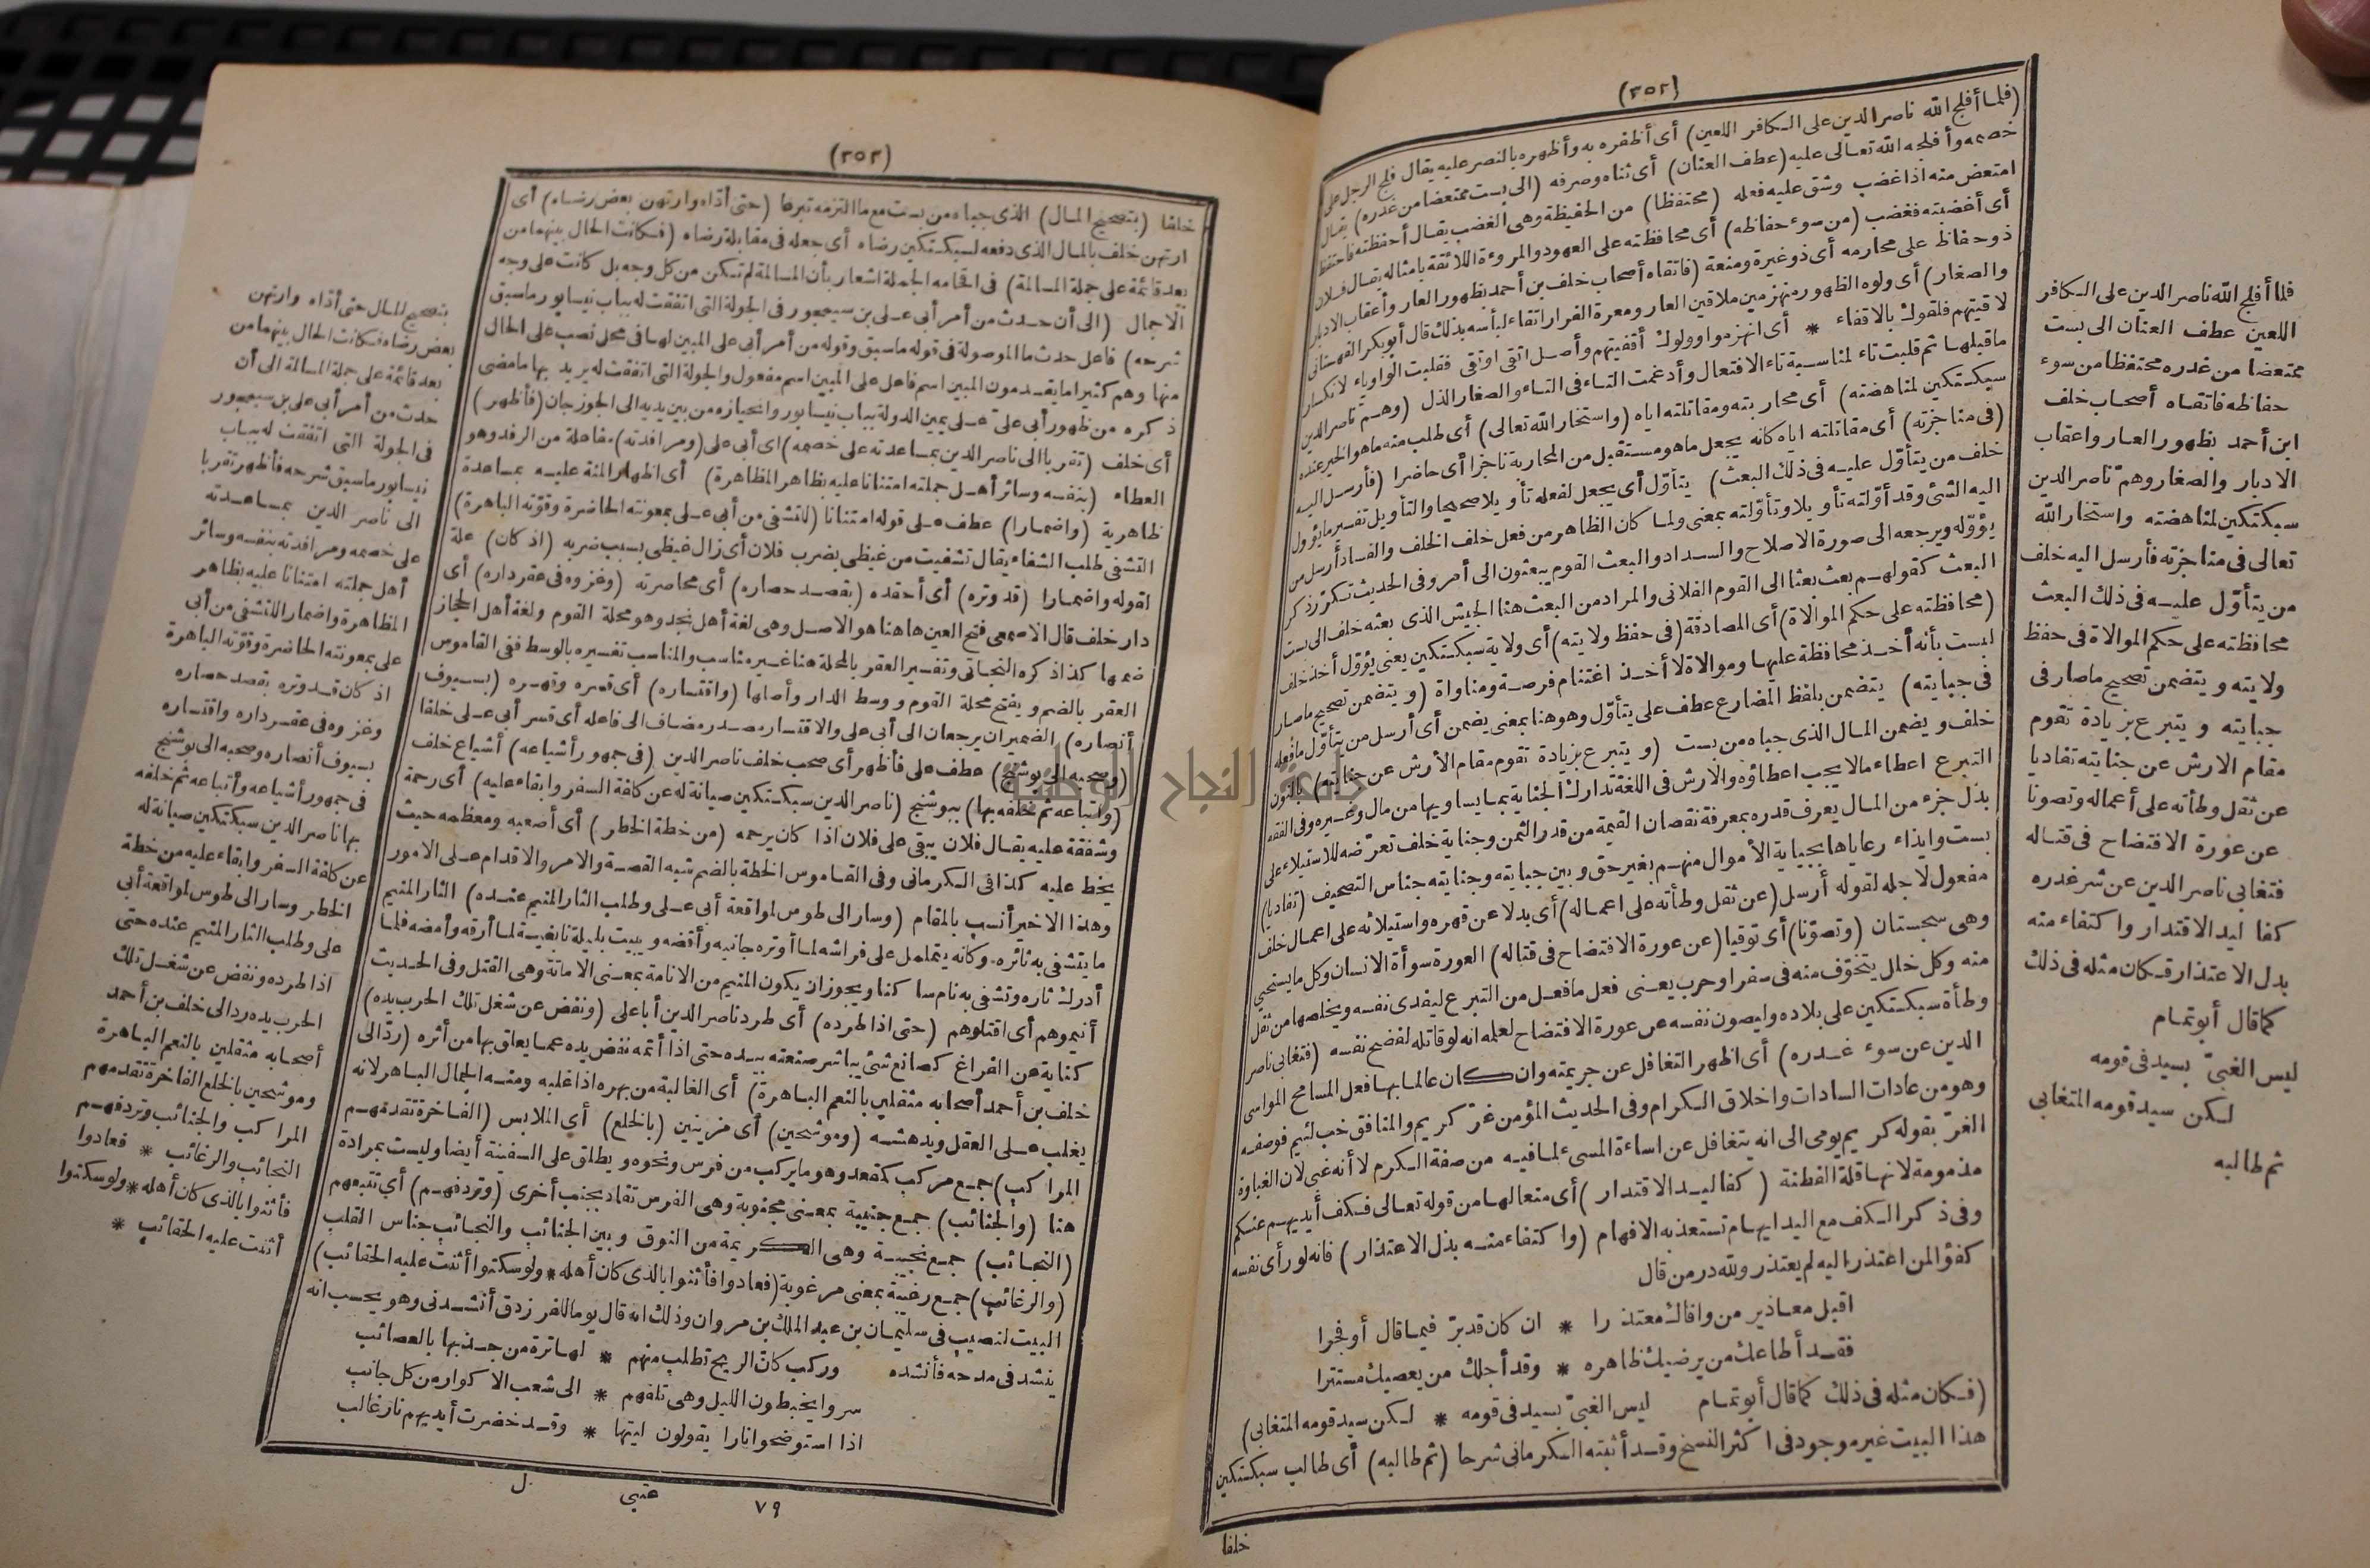 (٣٥٢)
(فلما أفلج الله ناصر الدين على الكافر اللعين) أى أظفره به وأظهره بالنصر عليه يقال فلج الرجل على
خصمه وأفلجه الله تعالى عليه (عطف العنان) أى ثناه وصرفه (الى بست ممتعضا من غدره) يقال
امتعض منه اذا غضب وشق عليه فعله (محتفظا) من الحفيظة وهى الغضب يقال أحفظته فاحتفظ
أى أغضبته فغضب (من سوء حفاظه) أى محافظته على العهود والمروءة اللائقة بامثاله يقال فلان
ذو حفاظ على محارمه أى ذو غيرة ومنعة (فاتقاه أصحاب خلف بن أحمد بظهور العار وأعقاب الادبار
والصغار) أى ولوه الظهور منهزمين ملاقين العار ومعرة الفرار اتقاء لبأسه بذلك قال أبو بكر القهستانى
لاقيتهم فلقوك بالاقفاء * أى انهزموا وولوك أقفيتهم وأصل اتقى اوتقى فقلبت الواو ياء لانكسار
ماقبلها ثم قلبت تاء لمناسبة تاء الافتعال وأدغمت التاء فى التاء والصغار الذل (وهم ناصر الدين
سبكتكين لمناهضته) أى محاربته ومقاتلته اياه (واستخار الله تعالى) أى طلب منه ماهو الخير عنده
(فى مناجزته) أى مقاتلته اياه كانه يجعل ماهو مستقبل من المحاربة ناجزا أى حاضرا (فأرسل اليه
خلف من يتأول عليه فى ذلك البعث) يتأول أى يجعل لفعله تأويلا صحيحا والتأويل تفسير مايؤول
اليه الشئ وقد أولته تأويلا وتأولته بمعنى ولما كان الظاهر من فعل خلف الخلف والفساد أرسل من
يؤوله ويرجعه الى صورة الاصلاح والسداد والبعث القوم يبعثون الى أمر وفى الحديث تكرر ذكر
البعث كقولهم بعث بعثا الى القوم الفلانى والمراد من البعث هنا الجيش الذى بعثه خلف الى بست
(محافظته على حكم الموالاة) أى المصادقة (فى حفظ ولايته) أى ولاية سبكتكين يعنى يؤول أخذ خلف
لبست بأنه أخذ محافظة عليها وموالاة لا أخذ اغتنام فرصة ومناواة (ويتضمن تصحيح ماصار
فى جبايته) يتضمن بلفظ المضارع عطف على يتأول وهو هنا بمعنى يضمن أى أرسل من يتأول مافعله
خلف ويضمن المال الذى جباه من بست (ويتبرع بزيادة تقوم مقام الأرش عن جنايته) بالنون
التبرع اعطاء مالا يجب اعطاؤه والارش فى اللغة تدارك الجناية بما يساويها من مال وغيره وفى الفقه
بذل جزء من المال يعرف قدره بمعرفة نقصان القيمة من قدر الثمن وجناية خلف تعرضه للاستيلاء على
بست وايذاء رعاياها بجباية الأموال منهم بغير حق وبين جبايته وجنايته جناس التصحيف (تفاديا)
مفعول لاجله لقوله أرسل (عن ثقل وطأته على اعماله) أى بدلا عن قهره واستيلائه على اعمال خلف
وهى سجستان (وتصونا) أى توقيا (عن عورة الافتضاح فى قتاله) العورة سوأة الانسان وكل مايستحيى
منه وكل خلل يتخوف منه فى سفر او حرب يعنى فعل مافعل من التبرع ليفدى نفسه ويخلصها من ثقل
وطأة سبكتكين على بلاده وليصون نفسه عن عورة الافتضاح لعلمه انه لو قاتله لفضح نفسه (فتغابى ناصر
الدين عن سوء غدره) أى اظهر التغافل عن جريمته وان كان عالما بها فعل المسامح المواسى
وهو من عادات السادات واخلاق الكرام وفى الحديث المؤمن غر كريم والمنافق خب لئيم فوصفه
الغر بقوله كريم يومى الى انه يتغافل عن اساءة المسىء لما فيه من صفة الكرم لا أنه غبى لان الغباوة
مذمومة لانها قلة الفطنة (كفا ليد الاقتدار) أى منعا لها من قوله تعالى فكف أيديهم عنكم
وفى ذكر الكف مع اليد ايهام تستعذبه الافهام (واكتفاء منه بذل الاعتذار) فانه لو رأى نفسه
كفؤا لمن اعتذر اليه لم يعتذر ولله در من قال
اقبل معاذير من وافاك معتذرا * ان كان قد بر فيما قال أو فجرا
فقد أطاعك من يرضيك ظاهره * وقد أجلك من يعصيك مستترا
(فكان مثله فى ذلك كما قال أبو تمام ليس الغبى بسيد فى قومه * لكن سيد قومه المتغابى)
هذا البيت غير موجود فى اكثر النسخ وقد أثبته الكرمانى شرحا (ثم طالبه) أى طالب سبكتكين
خلفا
فلما أفلج الله ناصر الدين على الكافر
اللعين عطف العنان الى بست
ممتعضا من غدره محتفظا من سوء
حفاظه فاتقاه أصحاب خلف
ابن أحمد بظهور العار واعقاب
الادبار والصغار وهم ناصر الدين
سبكتكين لمناهضته واستخار الله
تعالى فى مناجزته فأرسل اليه خلف
من يتأول عليه فى ذلك البعث
محافظته على حكم الموالاة فى حفظ
ولايته ويتضمن تصحيح ماصار فى
جبايته ويتبرع بزيادة تقوم
مقام الارش عن جنايته تفاديا
عن ثقل وطأته على أعماله وتصونا
عن عورة الافتضاح فى قتاله
فتغابى ناصر الدين عن شر غدره
كفا ليد الاقتدار واكتفاء منه
بدل الاعتذار فكان مثله فى ذلك
كما قال أبو تمام
ليس الغبى بسيد فى قومه
لكن سيد قومه المتغابى
ثم طالبه
(٣٥٣)
خلفا (بتصحيح المال) الذى جباه من بست مع ما التزمه تبرعا (حتى أداه وارتهن بعض رضاه) أى
ارتهن خلف بالمال الذى دفعه لسبكتكين رضاه أى جعله فى مقابلة رضاه (فكانت الحال بينهما من
بعد قائمة على جملة المسالمة) فى اقحامه الجملة اشعار بأن المسالمة لم تكن من كل وجه بل كانت على وجه
الاجمال (الى أن حدث من أمر أبى على بن سيمجور فى الجولة التى اتفقت له بباب نيسابور ماسبق
شرحه) فاعل حدث ما الموصولة فى قوله ماسبق وقوله من أمر أبى على المبين لها فى محل نصب على الحال
منها وهم كثيرا ما يقدمون المبين اسم فاعل على المبين اسم مفعول والجولة التى اتفقت له يريد بها مامضى
ذكره من ظهور أبى على على يمين الدولة بباب نيسابور وانحيازه من بين يديه الى الجوزجان (فأظهر)
أى خلف (تقربا الى ناصر الدين بمساعدته على خصمه) اى أبى على (ومرافدته) مفاعلة من الرفد وهو
العطاء (بنفسه وسائر أهل جملته امتنانا عليه بظاهر المظاهرة) أى اظهار المنة عليه بمساعدة
ظاهرية (واضمارا) عطف على قوله امتنانا (للتشفى من أبى على بمعونته الحاضرة وقوته الباهرة)
التشفى طلب الشفاء يقال تشفيت من غيظى بضرب فلان أى زال غيظى بسبب ضربه (اذ كان) علة
لقوله واضمارا (قد وتره) أى أحقده (بقصد حصاره) أى محاصرته (وغزوه فى عقر داره) أى
دار خلف قال الاصمعى فتح العين هاهنا هو الاصل وهى لغة أهل نجد وهو محلة القوم ولغة أهل الحجاز
ضمها كذا ذكره النجاتى وتفسير العقر بالمحلة هنا غير مناسب والمناسب تفسيره بالوسط ففى القاموس
العقر بالضم ويفتح محلة القوم ووسط الدار وأصلها (واقتساره) أى قسره وقهره (بسيوف
أنصاره) الضميران يرجعان الى أبى على والاقتسار مصدر مضاف الى فاعله أى قسر أبى على خلفا
(وصحبه الى بوشنج) عطف على فأظهر أى صحب خلف ناصر الدين (فى جمهور أشياعه) أشياع خلف
(وأتباعه ثم خلفه بها) ببوشنج (ناصر الدين سبكتكين صيانة له عن كلفة السفر وابقاء عليه) أى رحمة
وشفقة عليه يقال فلان يبقى على فلان اذا كان يرحمه (من خطة الخطر) أى أصعبه ومعظمه حيث
يخط عليه كذا فى الكرمانى وفى القاموس الخطة بالضم شبه القصة والامر والاقدام على الامور
وهذا الاخير أنسب بالمقام (وسار الى طوس لمواقعة أبى على وطلب الثار المنيم عنده) الثار المنيم
مايتشفى به ثائره وكانه يتململ على فراشه لما أوتره جانيه وأقضه ويبيت بليلة نابغية لما أرقه وأمضه فلما
أدرك ثاره وتشفى به نام ساكنا ويجوز ان يكون المنيم من الانامة بمعنى الاماتة وهى القتل وفى الحديث
أنيموهم أى اقتلوهم (حتى اذا طرده) أى طرد ناصر الدين أبا على (ونفض عن شغل تلك الحرب يده)
كناية عن الفراغ كصانع شئ يباشر صنعته بيده حتى اذا أتمه نفض يده عما يعلق بها من أثره (رد الى
خلف بن أحمد أصحابه مثقلين بالنعم الباهرة) أى الغالبة من بهره اذا غلبه ومنه الجمال الباهر لانه
يغلب على العقل ويدهشه (وموشحين) أى مزينين (بالخلع) أى الملابس (الفاخرة تقدمهم
المراكب) جمع مركب كمقعد وهو مايركب من فرس ونحوه ويطلق على السفينة أيضا وليست بمرادة
هنا (والجنائب) جمع جنيبة بمعنى مجنوبة وهى الفرس تقاد بجنب أخرى (وتردفهم) أى تتبعهم
(النجائب) جمع نجيبة وهى الكريمة من النوق وبين الجنائب والنجائب جناس القلب
(والرغائب) جمع رغيبة بمعنى مرغوبة (فعادوا فأثنوا بالذى كان أهله * ولو سكتوا أثنت عليه الحقائب)
البيت لنصيب فى سليمان بن عبد الملك بن مروان وذلك انه قال يوما للفرزدق أنشدنى وهو يحسب انه
ينشد فى مدحه فأنشده وركب كان الريح تطلب منهم * لها ترة من جذبها بالعصائب
سروا يخبطون الليل وهى تلفهم * الى شعب الاكوار من كل جانب
اذا استوضحوا نارا يقولون ليتها * وقد خضرت أيديهم نار غالب
٧٩ عتبى ل
بتصحيح المال حتى أداه وارتهن
بعض رضاه فكانت الحال بينهما من
بعد قائمة على جملة المسالمة الى أن
حدث من أمر أبى على بن سيمجور
فى الجولة التى اتفقت له بباب
نيسابور ماسبق شرحه فأظهر تقربا
الى ناصر الدين بمساعدته
على خصمه ومرافدته بنفسه وسائر
أهل جملته امتنانا عليه بظاهر
المظاهرة واضمارا للتشفى من أبى
على بمعونته الحاضرة وقوته الباهرة
اذ كان قد وتره بقصد حصاره
وغزوه فى عقر داره واقتساره
بسيوف أنصاره وصحبه الى بوشنج
فى جمهور أشياعه وأتباعه ثم خلفه
بها ناصر الدين سبكتكين صيانة له
عن كلفة السفر وابقاء عليه من خطة
الخطر وسار الى طوس لمواقعة أبى
على وطلب الثار المنيم عنده حتى
اذا طرده ونفض عن شغل تلك
الحرب يده رد الى خلف بن أحمد
أصحابه مثقلين بالنعم الباهرة
وموشحين بالخلع الفاخرة تقدمهم
المراكب والجنائب وتردفهم
النجائب والرغائب * فعادوا
فأثنوا بالذى كان أهله * ولو سكتوا
أثنت عليه الحقائب *
جامعة النجاح الوطنية